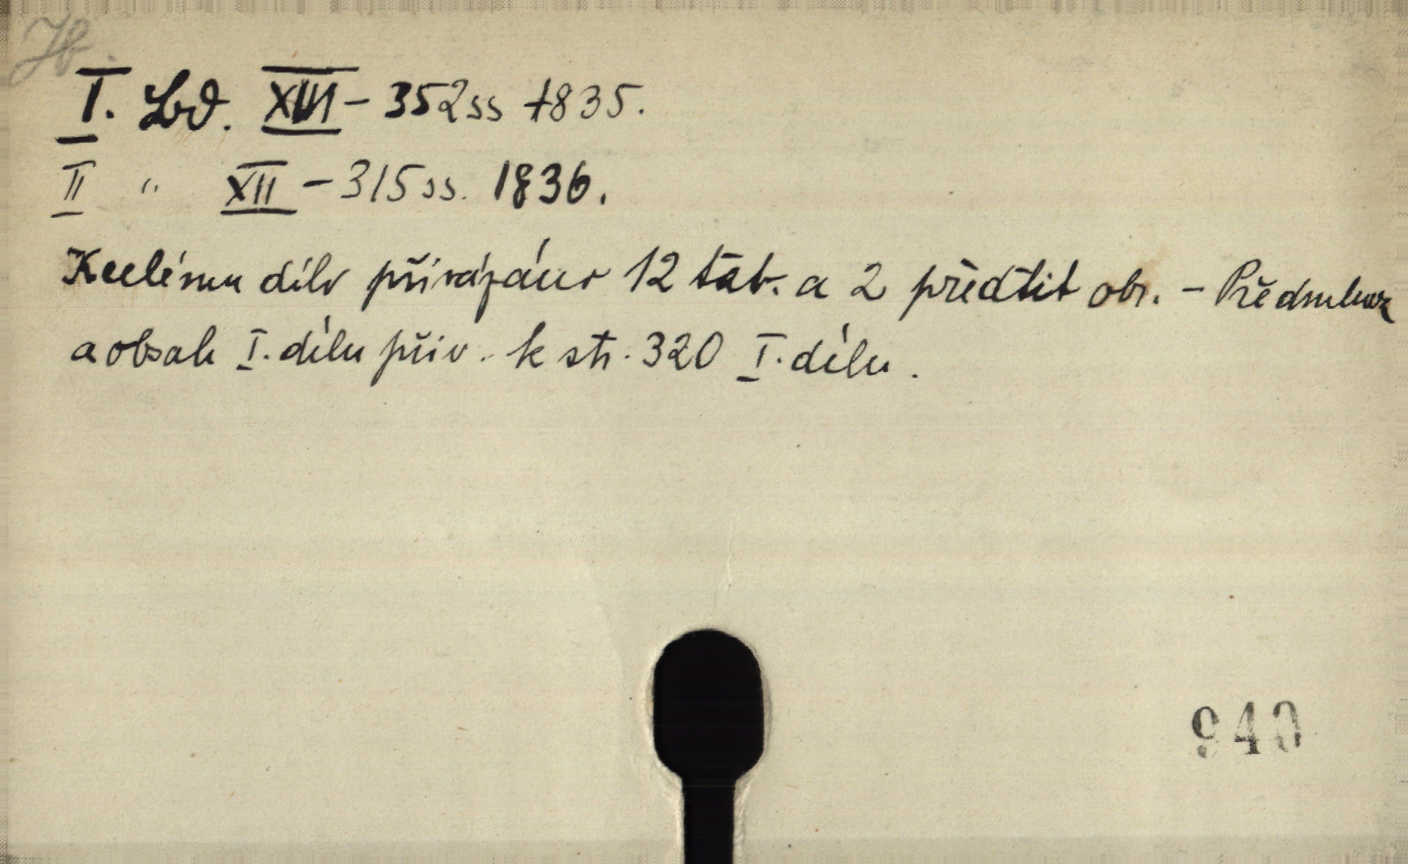 I. Bd. XIII - 352 ss 1835.
II " XII - 315 ss. 1836.
K celému dílu přivázáno 12 tab. a 2 předtit obr. - Předmluva
a obsah I. dílu přiv. k str. 320 I. dílu.
940